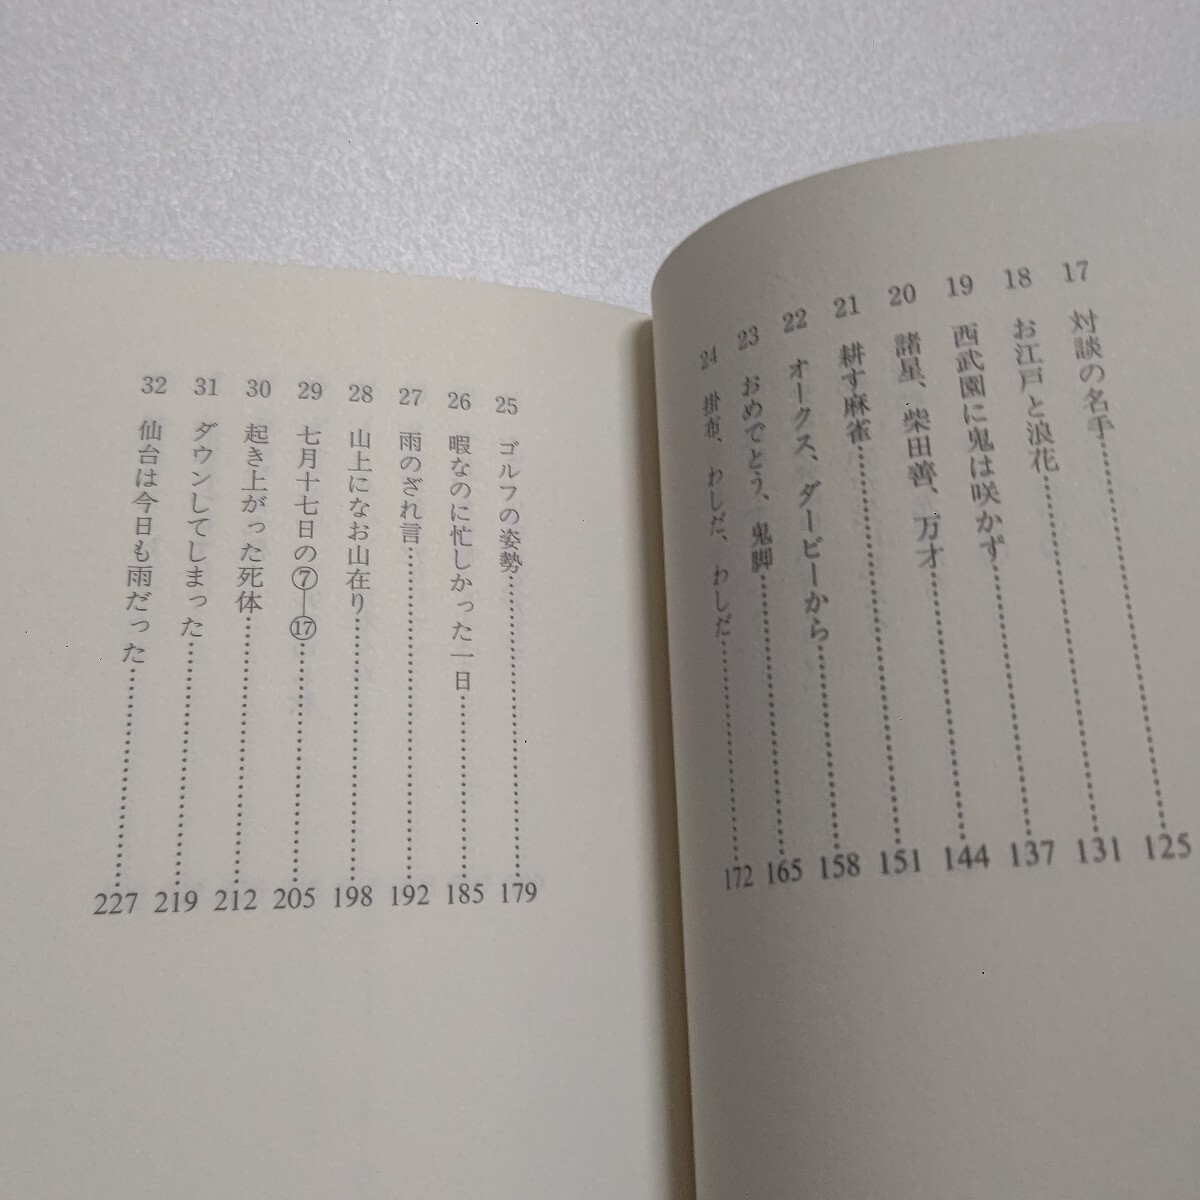 17 対談の名手……125
18 お江戸と浪花……131
19 西武園に鬼は咲かず……137
20 諸星、柴田善、万才……144
21 耕す麻雀……151
22 オークス、ダービーから……158
23 おめでとう、鬼脚……165
24 掛布、わしだ、わしだ……172
25 ゴルフの姿勢……179
26 暇なのに忙しかった一日……185
27 雨のざれ言……192
28 山上になお山在り……198
29 七月十七日の⑦―⑰……205
30 起き上がった死体……212
31 ダウンしてしまった……219
32 仙台は今日も雨だった……227